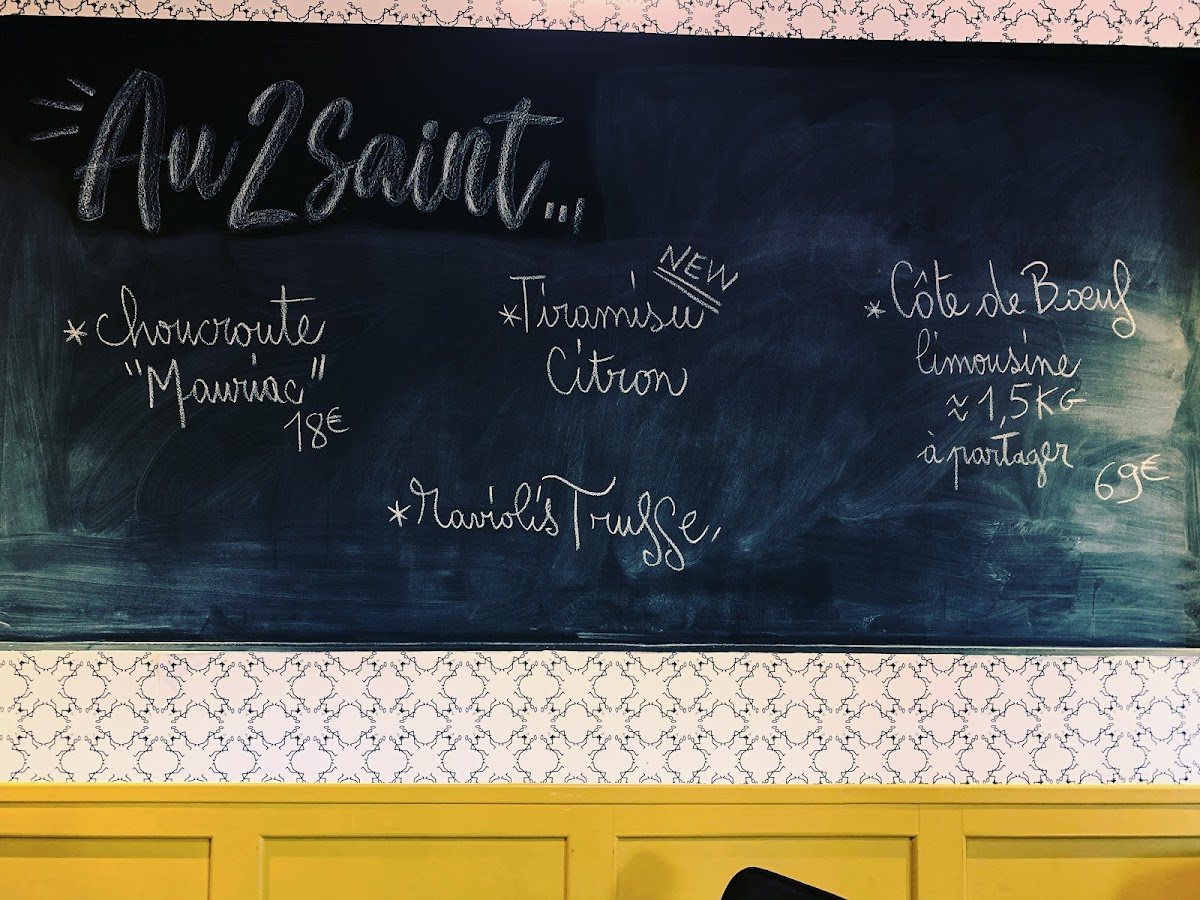 Au 2 Saint...
* Choucroute
"Mauriac"
18€
NEW
* Tiramisu
Citron
* Côte de Bœuf
limousine
≈ 1,5KG
à partager
69€
* Raviolis Truffe,